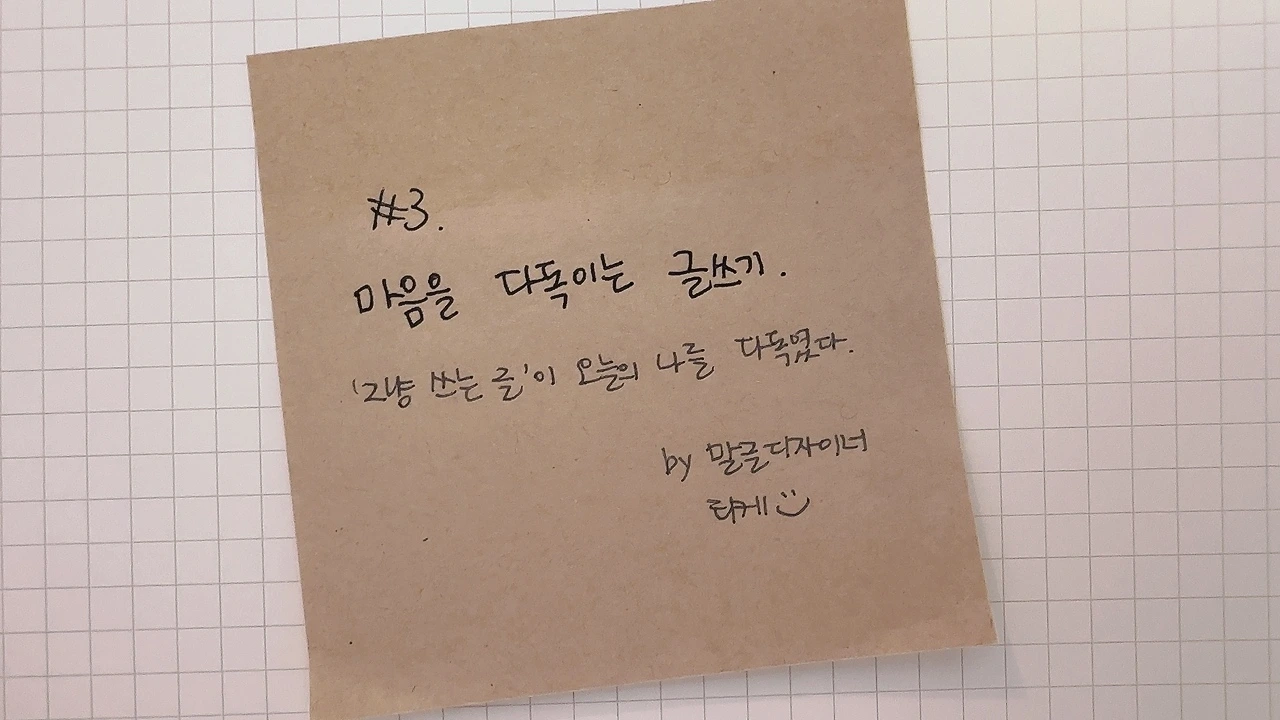 #3.
마음을 다독이는 글쓰기.
'그냥 쓰는 글'이 오늘의 나를 다독였다.
by 말글디자이너
타케 :)